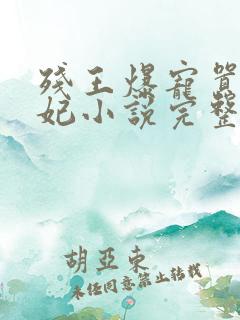 残王爆宠嚣
妃小说完整
胡亞東
未任同意禁止转载